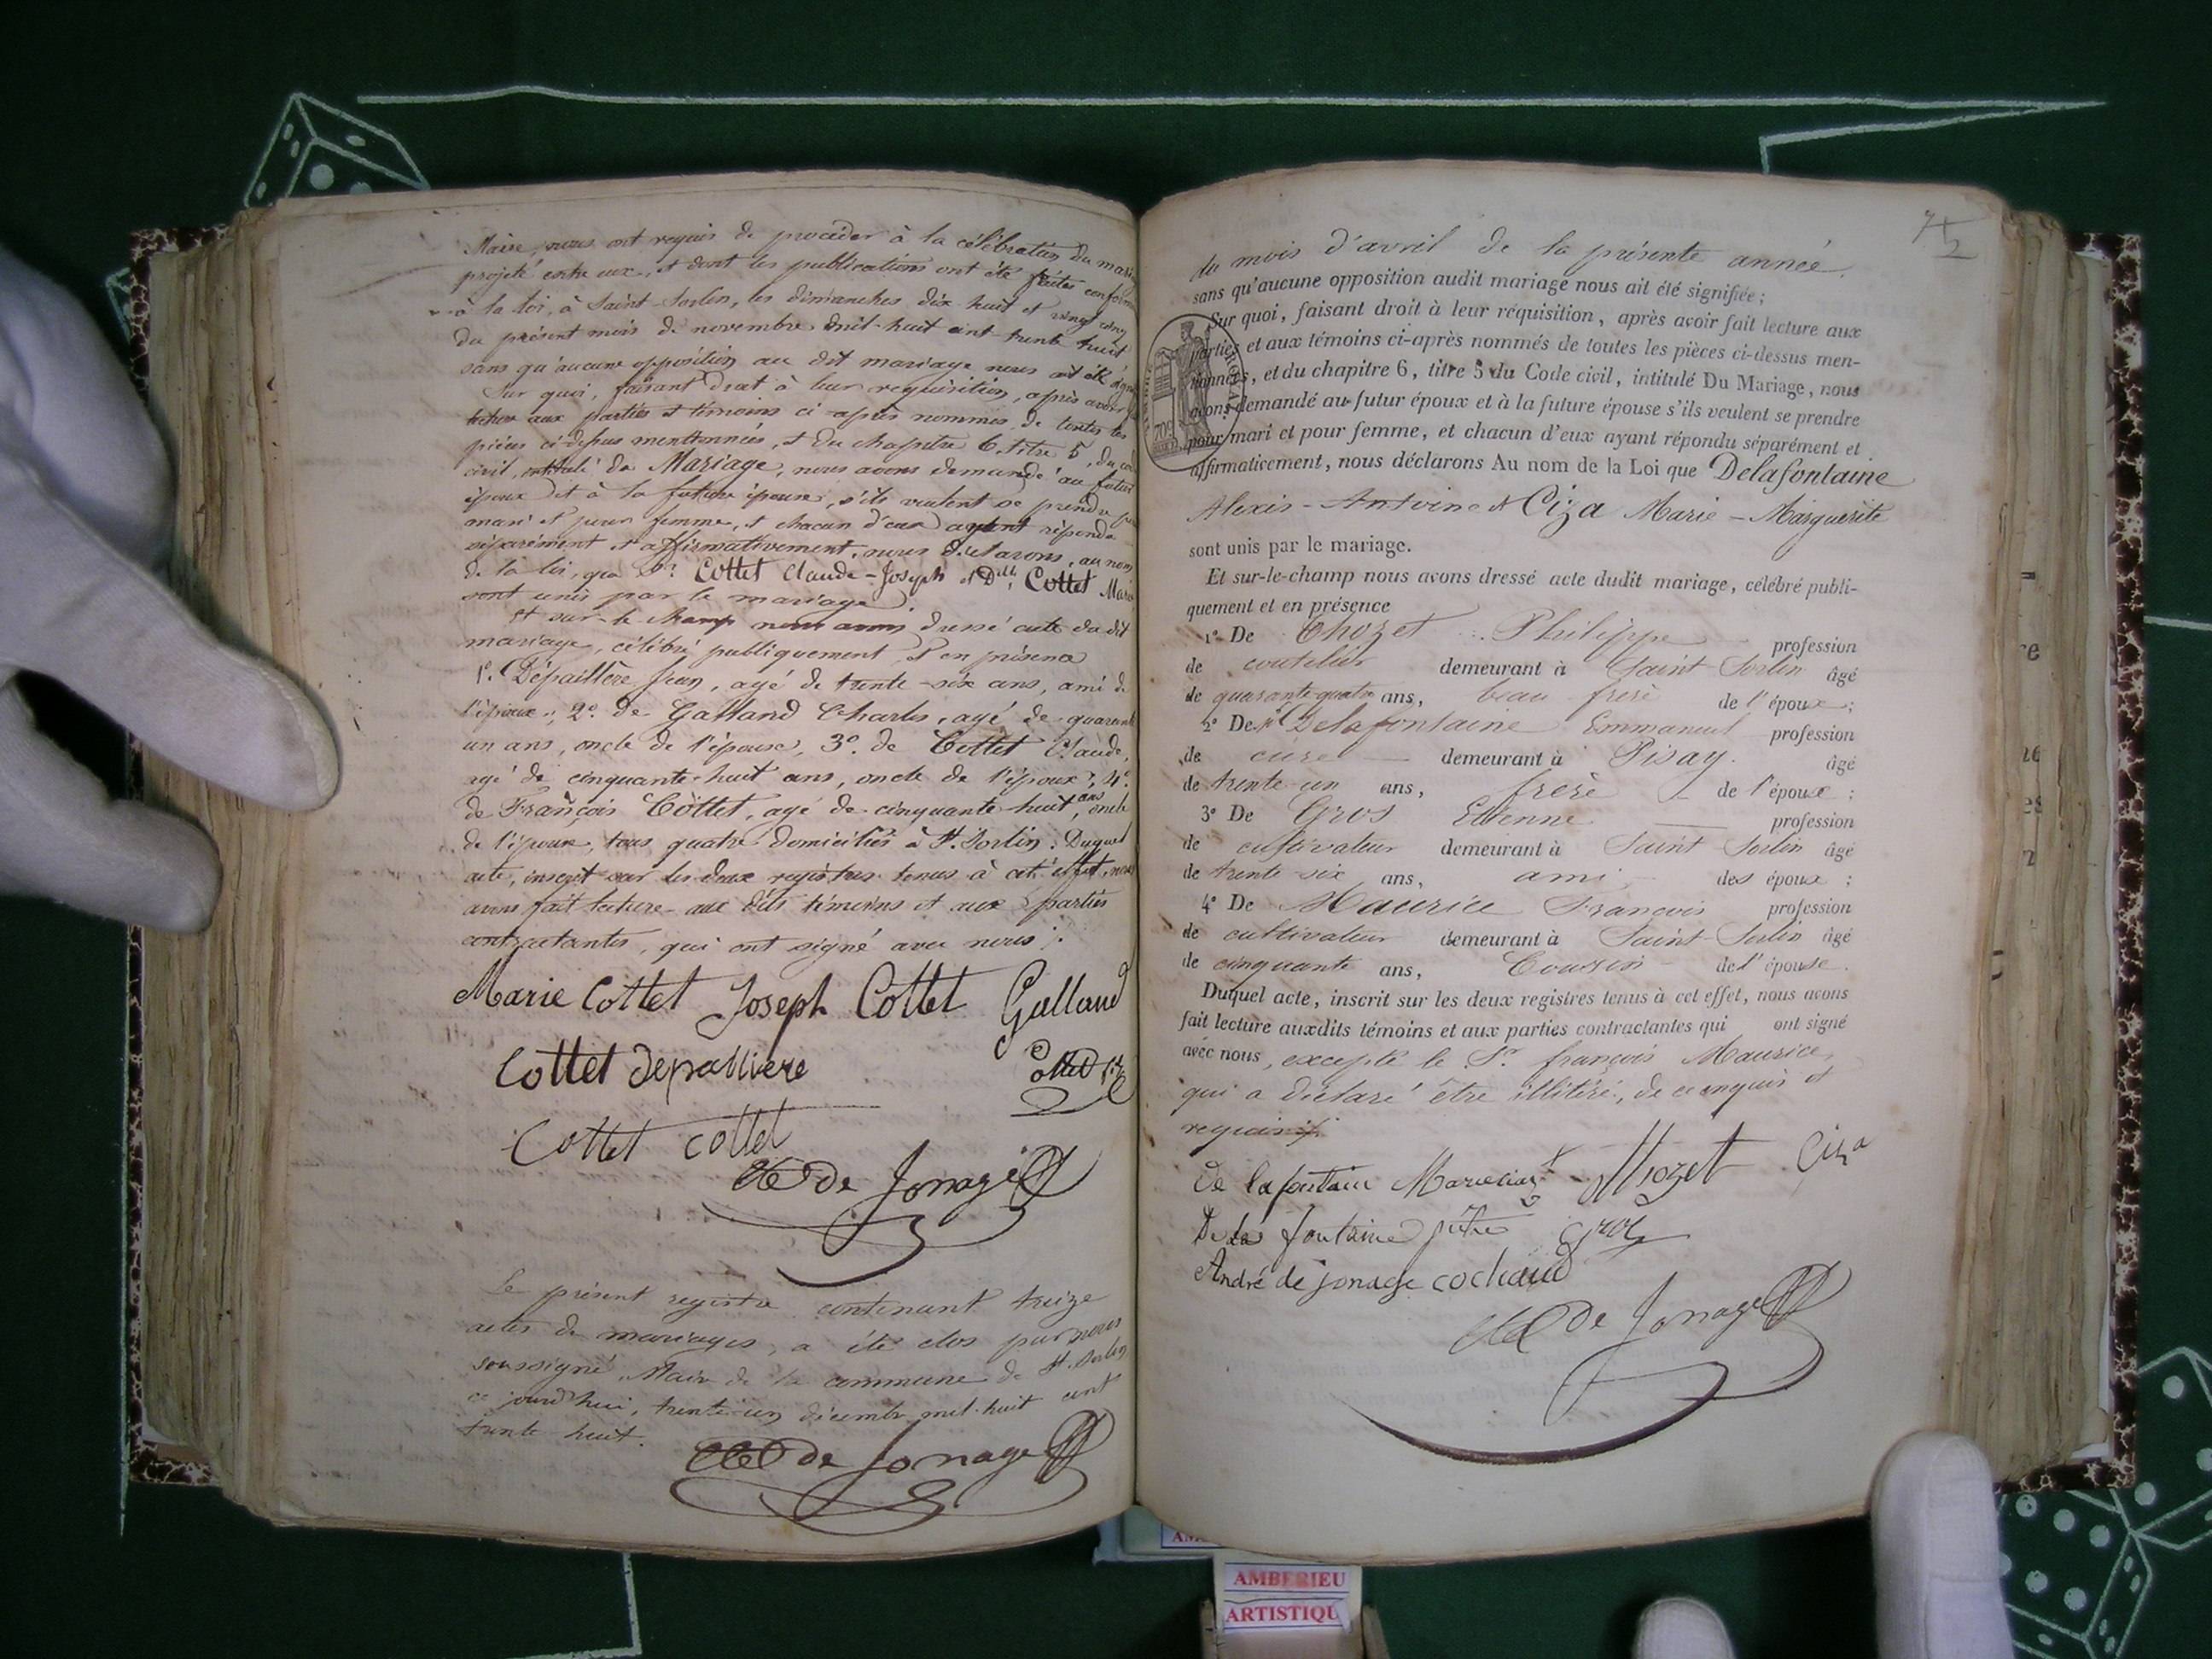 Maire, nous ont requis de procéder à la célébration du
projeté entre eux, et dont les publications ont été faites
à la loi, à Saint-Sorlin, les dimanches dix-huit et vingt cinq
du présent mois de novembre mil-huit cent trente huit
sans qu'aucune opposition au dit mariage nous ait été
Sur quoi, faisant droit à leur requisition, après avoir
lecture aux parties et témoins ci-après nommés, de toutes les
pièces ci-dessus mentionnées, et du chapitre 6, titre 5, du
civil, intitulé du Mariage, nous avons demandé au futur
époux et à la future épouse, s'ils veulent se prendre
mari et pour femme, et chacun d'eux ayant répondu
séparément et affirmativement, nous déclarons, au nom
de la loi, que Sr. Cottet Claude-Joseph et Dlle Cottet
sont unis par le mariage.
Et sur-le-champ nous avons dressé acte du dit
mariage, célébré publiquement, et en présence
1º. Dépaillère Jean, agé de trente-six ans, ami de
l'époux; 2º. de Galland Charles, agé de quarante
un ans, oncle de l'épouse, 3º. de Cottet Claude,
agé de cinquante-huit ans, oncle de l'époux; 4º.
de François Cottet, agé de cinquante huit ans, oncle
de l'époux, tous quatre domiciliés à St. Sorlin. Duquel
acte, inscrit sur les deux registres tenus à cet effet, nous
avons fait lecture aux dits témoins et aux parties
contractantes, qui ont signé avec nous.
Marie Cottet Joseph Cottet Galland
Cottet depallliere Cottet
Cottet cottet
de Jonage
Le présent registre contenant treize
actes de mariages, a été clos par nous
soussigné, Maire de la commune de St. Sorlin
ce jourd'hui, trente-un décembre mil-huit cent
trente-huit.
de Jonage
du mois d'avril de la présente année.
sans qu'aucune opposition audit mariage nous ait été signifiée;
Sur quoi, faisant droit à leur réquisition, après avoir fait lecture aux
parties et aux témoins ci-après nommés de toutes les pièces ci-dessus men-
tionnées, et du chapitre 6, titre 5 du Code civil, intitulé Du Mariage, nous
avons demandé au futur époux et à la future épouse s'ils veulent se prendre
pour mari et pour femme, et chacun d'eux ayant répondu séparément et
affirmativement, nous déclarons Au nom de la Loi que Delafontaine
Alexis-Antoine & Ciza Marie-Marguerite
sont unis par le mariage.
Et sur-le-champ nous avons dressé acte dudit mariage, célébré publi-
quement et en présence
1º De Chozet Philippe profession
de coutelier demeurant à Saint-Sorlin âgé
de quarante-quatre ans, beau frere de l'époux;
2º De Mr Delafontaine Emmanuel profession
de curé demeurant à Pisay. âgé
de trente-un ans, frere de l'époux;
3º De Gros Etienne profession
de cultivateur demeurant à Saint Sorlin âgé
de trente-six ans, ami des époux;
4º De Maurice François profession
de cultivateur demeurant à Saint-Sorlin âgé
de cinquante ans, Cousin de l'épouse.
Duquel acte, inscrit sur les deux registres tenus à cet effet, nous avons
fait lecture auxdits témoins et aux parties contractantes qui ont signé
avec nous, excepté le Sr. françois Maurice,
qui a déclaré être illitéré, de ce enquis et
requis.
De lafontain Chozet Ciza
De la fontaine prêtre Gros
André de jonage cochaud
de Jonage
AMBERIEU
ARTISTIQU